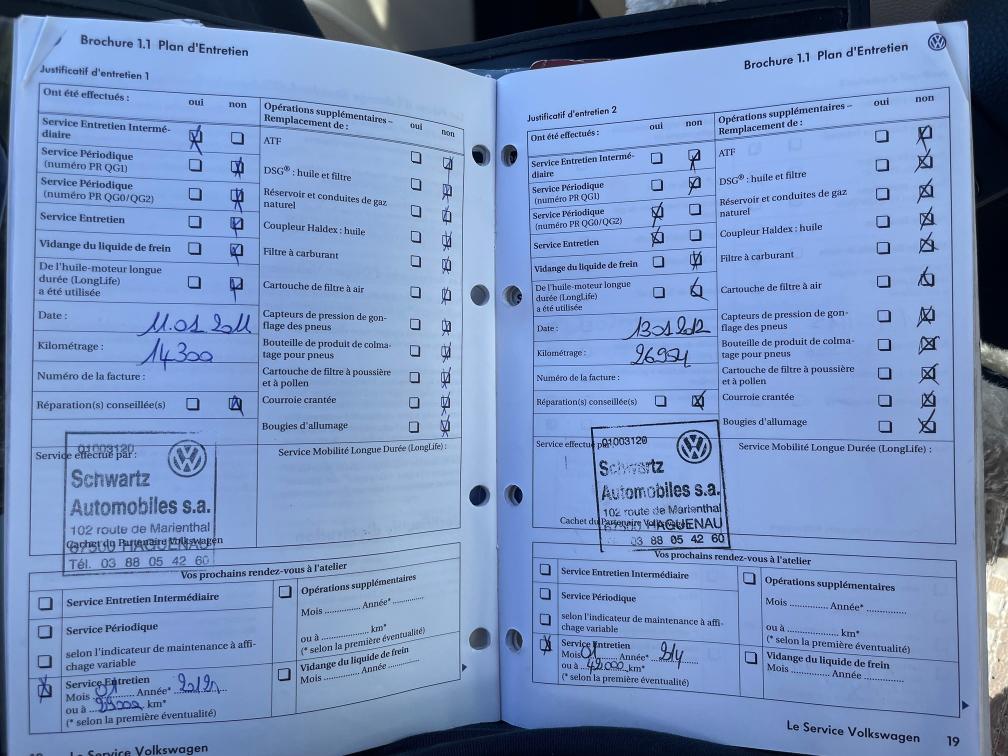 Brochure 1.1 Plan d'Entretien
Justificatif d'entretien 1
Ont été effectués :
oui
non
Service Entretien Intermé-
diaire
Service Périodique
(numéro PR QG1)
Service Périodique
(numéro PR QG0/QG2)
Service Entretien
Vidange du liquide de frein
De l'huile-moteur longue
durée (LongLife)
a été utilisée
Date :
11.01 2011
Kilométrage :
14300
Numéro de la facture :
Réparation(s) conseillée(s)
Opérations supplémentaires –
Remplacement de :
oui
non
ATF
DSG® : huile et filtre
Réservoir et conduites de gaz
naturel
Coupleur Haldex : huile
Filtre à carburant
Cartouche de filtre à air
Capteurs de pression de gon-
flage des pneus
Bouteille de produit de colma-
tage pour pneus
Cartouche de filtre à poussière
et à pollen
Courroie crantée
Bougies d'allumage
Service effectué par :
01003120
Schwartz
Automobiles s.a.
102 route de Marienthal
67500 HAGUENAU
Cachet du Partenaire Volkswagen
Tél. 03 88 05 42 60
Service Mobilité Longue Durée (LongLife) :
Vos prochains rendez-vous à l'atelier
Service Entretien Intermédiaire
Service Périodique
selon l'indicateur de maintenance à affi-
chage variable
Service Entretien
Mois 01 Année*
ou à km*
(* selon la première éventualité)
Opérations supplémentaires
Mois .............. Année* .............
ou à ..................... km*
(* selon la première éventualité)
Vidange du liquide de frein
Mois .............. Année .............
Le Service Volkswagen
Brochure 1.1 Plan d'Entretien
Justificatif d'entretien 2
Ont été effectués :
oui
non
Service Entretien Intermé-
diaire
Service Périodique
(numéro PR QG1)
Service Périodique
(numéro PR QG0/QG2)
Service Entretien
Vidange du liquide de frein
De l'huile-moteur longue
durée (LongLife)
a été utilisée
Date :
13 01 2012
Kilométrage :
26954
Numéro de la facture :
Réparation(s) conseillée(s)
Opérations supplémentaires –
Remplacement de :
oui
non
ATF
DSG® : huile et filtre
Réservoir et conduites de gaz
naturel
Coupleur Haldex : huile
Filtre à carburant
Cartouche de filtre à air
Capteurs de pression de gon-
flage des pneus
Bouteille de produit de colma-
tage pour pneus
Cartouche de filtre à poussière
et à pollen
Courroie crantée
Bougies d'allumage
Service effectué par
01003120
Schwartz
Automobiles s.a.
102 route de Marienthal
67500 HAGUENAU
Cachet du Partenaire Volkswagen
03 88 05 42 60
Service Mobilité Longue Durée (LongLife) :
Vos prochains rendez-vous à l'atelier
Service Entretien Intermédiaire
Service Périodique
selon l'indicateur de maintenance à affi-
chage variable
Service Entretien
Mois 01 Année*
ou à 42000 km*
(* selon la première éventualité)
Opérations supplémentaires
Mois .............. Année* .............
ou à ..................... km*
(* selon la première éventualité)
Vidange du liquide de frein
Mois .............. Année .............
Le Service Volkswagen
19